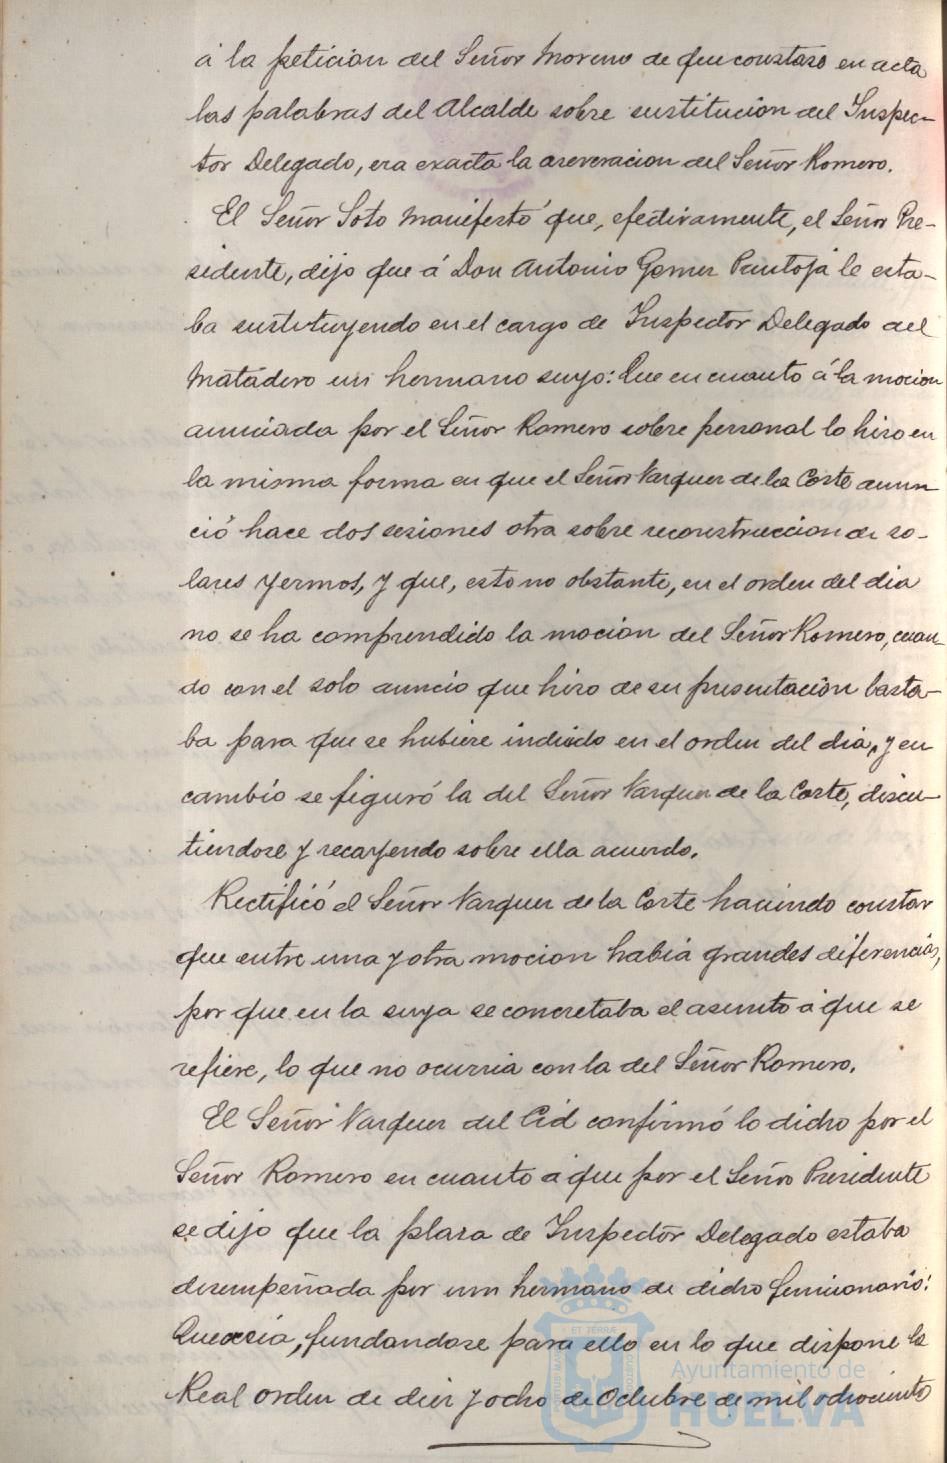 á la petición del Señor Moreno de que constase en acta
las palabras del Alcalde sobre sustitucion del Inspec-
tor Delegado, era exacta la aseveracion del Señor Romero.
El Señor Soto manifestó que, efectivamente, el Señor Pre-
sidente, dijo que á Don Antonio Gomez Pantoja le esta-
ba sustituyendo en el cargo de Inspector Delegado del
Matadero un hermano suyo: Que en cuanto á la mocion
anunciada por el Señor Romero sobre personal lo hizo en
la misma forma en que el Señor Vazquez de la Corte anun
ció hace dos sesiones otra sobre reconstruccion de so-
lares yermos, y que, esto no obstante, en el orden del dia
no se ha comprendido la mocion del Señor Romero, cuan-
do con el solo anuncio que hizo de su presentacion basta-
ba para que se hubiese incluido en el orden del dia, y en
cambio se figuró la del Señor Vazquez de la Corte, discu-
tiendose y recayendo sobre ella acuerdo.
Rectificó el Señor Vazquez de la Corte haciendo constar
que entre una y otra mocion habia grandes diferencias,
por que en la suya se concretaba el asunto á que se
refiere, lo que no ocurria con la del Señor Romero.
El Señor Vazquez del Cid confirmó lo dicho por el
Señor Romero en cuanto á que por el Señor Presidente
se dijo que la plaza de Inspector Delegado estaba
desempeñada por un hermano de dicho funcionario:
Que creia, fundandose para ello en lo que dispone la
Real orden de diez y ocho de Octubre de mil ochociento
Ayuntamiento de
HUELVA